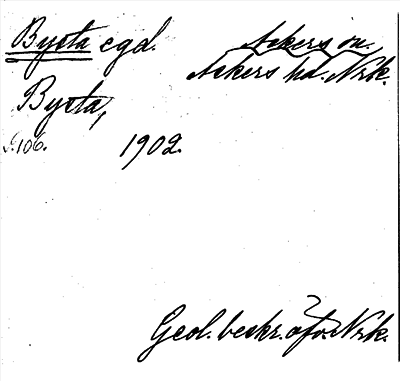 Bysta egd. Askers sn.
Askers hd. Nrk.
Bysta,
S. 106. 1902.
Geol. beskr. öfv. Nrk.